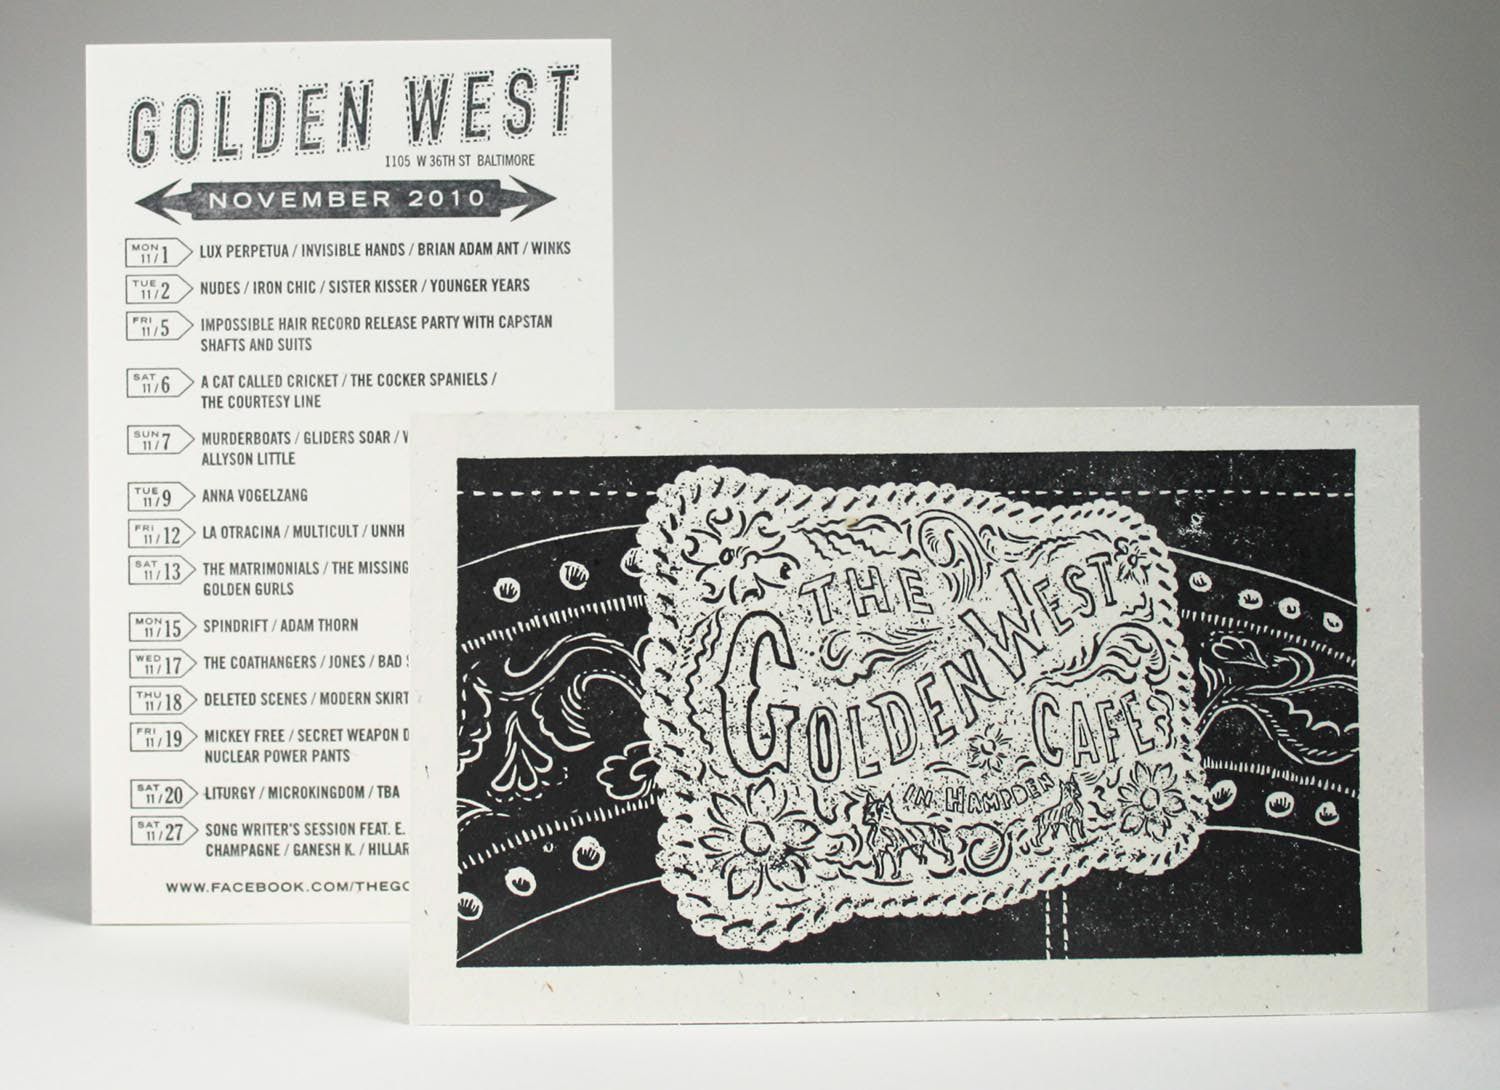 GOLDEN WEST
1105 W 36TH ST BALTIMORE
NOVEMBER 2010
MON 11/1 LUX PERPETUA / INVISIBLE HANDS / BRIAN ADAM ANT / WINKS
TUE 11/2 NUDES / IRON CHIC / SISTER KISSER / YOUNGER YEARS
FRI 11/5 IMPOSSIBLE HAIR RECORD RELEASE PARTY WITH CAPSTAN
SHAFTS AND SUITS
SAT 11/6 A CAT CALLED CRICKET / THE COCKER SPANIELS /
THE COURTESY LINE
SUN 11/7 MURDERBOATS / GLIDERS SOAR /
ALLYSON LITTLE
TUE 11/9 ANNA VOGELZANG
FRI 11/12 LA OTRACINA / MULTICULT / UNNH
SAT 11/13 THE MATRIMONIALS / THE MISSING
GOLDEN GURLS
MON 11/15 SPINDRIFT / ADAM THORN
WED 11/17 THE COATHANGERS / JONES / BAD
THU 11/18 DELETED SCENES / MODERN SKIRT
FRI 11/19 MICKEY FREE / SECRET WEAPON
NUCLEAR POWER PANTS
SAT 11/20 LITURGY / MICROKINGDOM / TBA
SAT 11/27 SONG WRITER'S SESSION FEAT. E.
CHAMPAGNE / GANESH K. / HILLAR
WWW.FACEBOOK.COM/THEGO
THE
GOLDEN WEST
CAFE
IN HAMPDEN